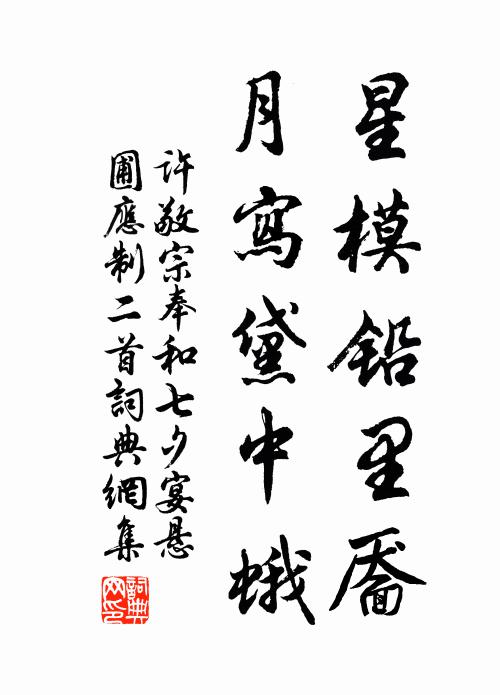 星模鉛里靨
月寫黛中蛾
許敬宗奉和七夕宴懸
圃應制二首詞典網集